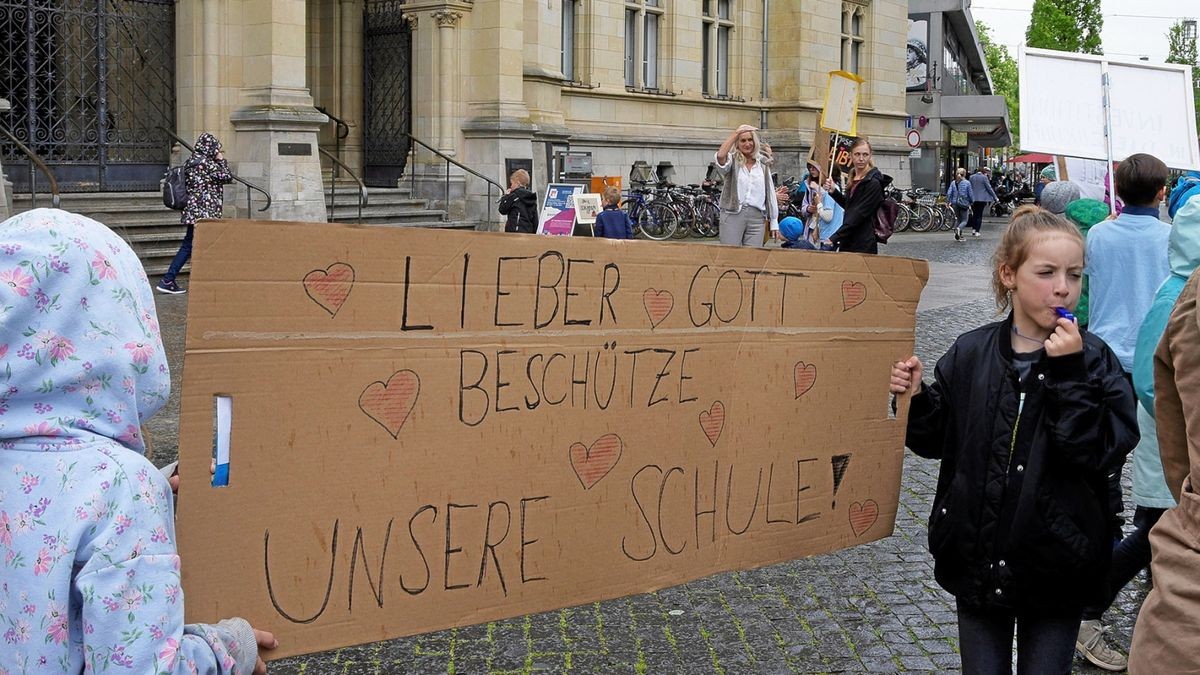 LIEBER GOTT
BESCHÜTZE
UNSERE SCHULE!